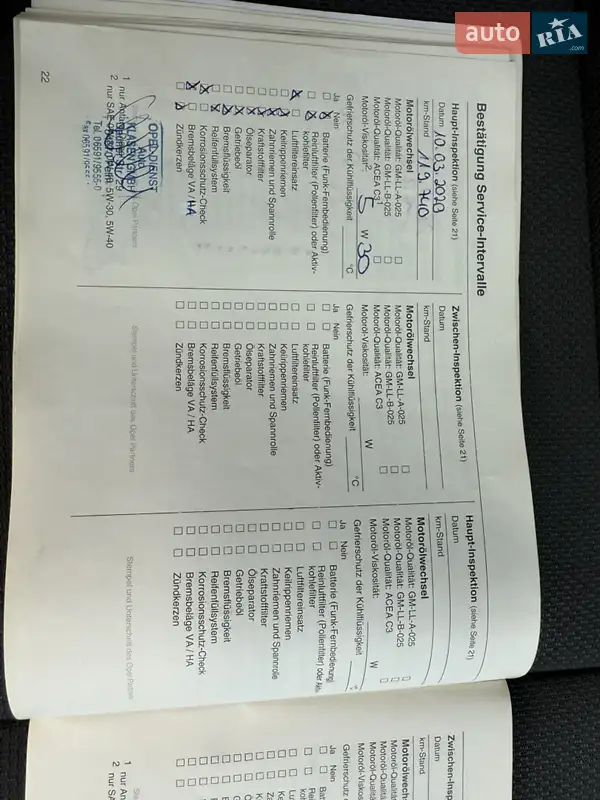 auto RIA .com
Bestätigung Service-Intervalle
Haupt-Inspektion (siehe Seite 21)
Datum 10.03.2020
km-Stand 149.740
Motorölwechsel
Motoröl-Qualität: GM-LL-A-025
Motoröl-Qualität: GM-LL-B-025
Motoröl-Qualität: ACEA C3
Motoröl-Viskosität: 5 W 30
Gefrierschutz der Kühlflüssigkeit °C
Ja Nein
Batterie (Funk-Fernbedienung)
Reinluftfilter (Pollenfilter) oder Aktiv-
kohlefilter
Luftfiltereinsatz
Keilrippenriemen
Zahnriemen und Spannrolle
Kraftstofffilter
Ölseparator
Getriebeöl
Bremsflüssigkeit
Reifenfüllsystem
Korrosionsschutz-Check
Bremsbeläge VA / HA
Zündkerzen
OPEL-DIENST
Opel Partners
1 nur
2 nur SAE 5W-30, 5W-40
22
Zwischen-Inspektion (siehe Seite 21)
Datum
km-Stand
Motorölwechsel
Motoröl-Qualität: GM-LL-A-025
Motoröl-Qualität: GM-LL-B-025
Motoröl-Qualität: ACEA C3
Motoröl-Viskosität: W
Gefrierschutz der Kühlflüssigkeit °C
Ja Nein
Batterie (Funk-Fernbedienung)
Reinluftfilter (Pollenfilter) oder Aktiv-
kohlefilter
Luftfiltereinsatz
Keilrippenriemen
Zahnriemen und Spannrolle
Kraftstofffilter
Ölseparator
Getriebeöl
Bremsflüssigkeit
Reifenfüllsystem
Korrosionsschutz-Check
Bremsbeläge VA / HA
Zündkerzen
Stempel und Unterschrift des Opel Partners
Haupt-Inspektion (siehe Seite 21)
Datum
km-Stand
Motorölwechsel
Motoröl-Qualität: GM-LL-A-025
Motoröl-Qualität: GM-LL-B-025
Motoröl-Qualität: ACEA C3
Motoröl-Viskosität: W
Gefrierschutz der Kühlflüssigkeit
Ja Nein
Batterie (Funk-Fernbedienung)
Reinluftfilter (Pollenfilter) oder
kohlefilter
Luftfiltereinsatz
Keilrippenriemen
Zahnriemen und Spannrolle
Kraftstofffilter
Ölseparator
Getriebeöl
Bremsflüssigkeit
Reifenfüllsystem
Korrosionsschutz-Check
Bremsbeläge VA / HA
Zündkerzen
Stempel und Unterschrift des Opel Partners
Zwischen-Inspektion
Datum
km-Stand
Ja Nein
1 nur
2 nur